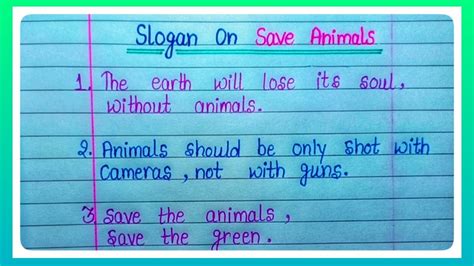 Slogan On Save Animals
1. The earth will lose its soul,
without animals.
2. Animals should be only shot with
Cameras, not with guns.
3 Save the animals,
Save the green.